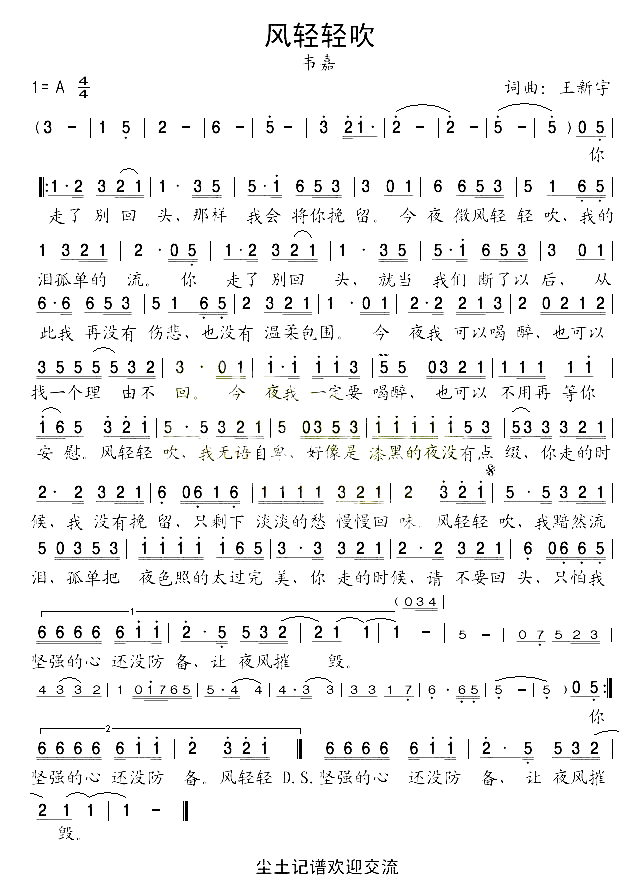 风轻轻吹
韦嘉
1=A 4/4 词曲：王新宇
(3 - | 1 5 | 2 - | 6 - | 5 - | 3 21· | 2 - | 2 - | 5 - | 5 )| 0 5 |
你
‖:1·2 3 21 | 1· 35 | 5·1 653 | 3 01 | 6 653 | 5 1 65 |
走了 别回 头、那样 我会 将你挽 留。今 夜 微风轻 轻 吹、我的
1 321 | 2 ·05 | 1·2 321 | 1 135 | 5·1 653 | 3 01 |
泪孤单的 流。你 走了 别回 头、就当 我们 断了以 后、从
6·6 653 | 51 65 | 2 321 | 1 01 | 2·2 213 | 2 0212 |
此我 再没有 伤悲、也没有 温柔包围。今 夜我 可以喝 醉、也可以
3555 5532 | 3 · 01 | 1·1 113 | 55 0321 | 1111 1 6 |
找一个理 由不 回。今 夜我 一定要 喝醉、也可以 不用再 等你
165 321 | 5·5321 | 50353 | 11111153 | 533321 |
安 慰。风轻轻 吹、我无语自卑、好像是 漆黑的夜没有点 缀、你走的时
2·2321 | 60616 | 1111 321 | 2 321 | 5·5321 |
候、我 没有挽 留、只剩下 淡淡的愁 慢慢回 味。风轻轻 吹、我黯然流
50353 | 1111 165 | 3·3321 | 2·2321 | 6 0665 |
泪、孤单把 夜色照的太过完 美、你 走的时候、请 不要回 头、只怕我
1
(034
6666 611 | 2·5 532 | 21 1 | 1 - | 5 - | 07523 |
坚强的心 还没防 备、让 夜风摧 毁。
4332 | 101765 | 5·4 43 | 3·1 13 | 3 321 | 6·65 | 5 - | 5 )| 05:‖
你
2
6666 611 | 2 321 ‖ 6666 611 | 2·5 532 |
坚强的心 还没防 备。风轻轻 D.S.坚强的心 还没防 备、让 夜风摧
2 1 1 | 1 - ‖
毁。
尘土记谱欢迎交流